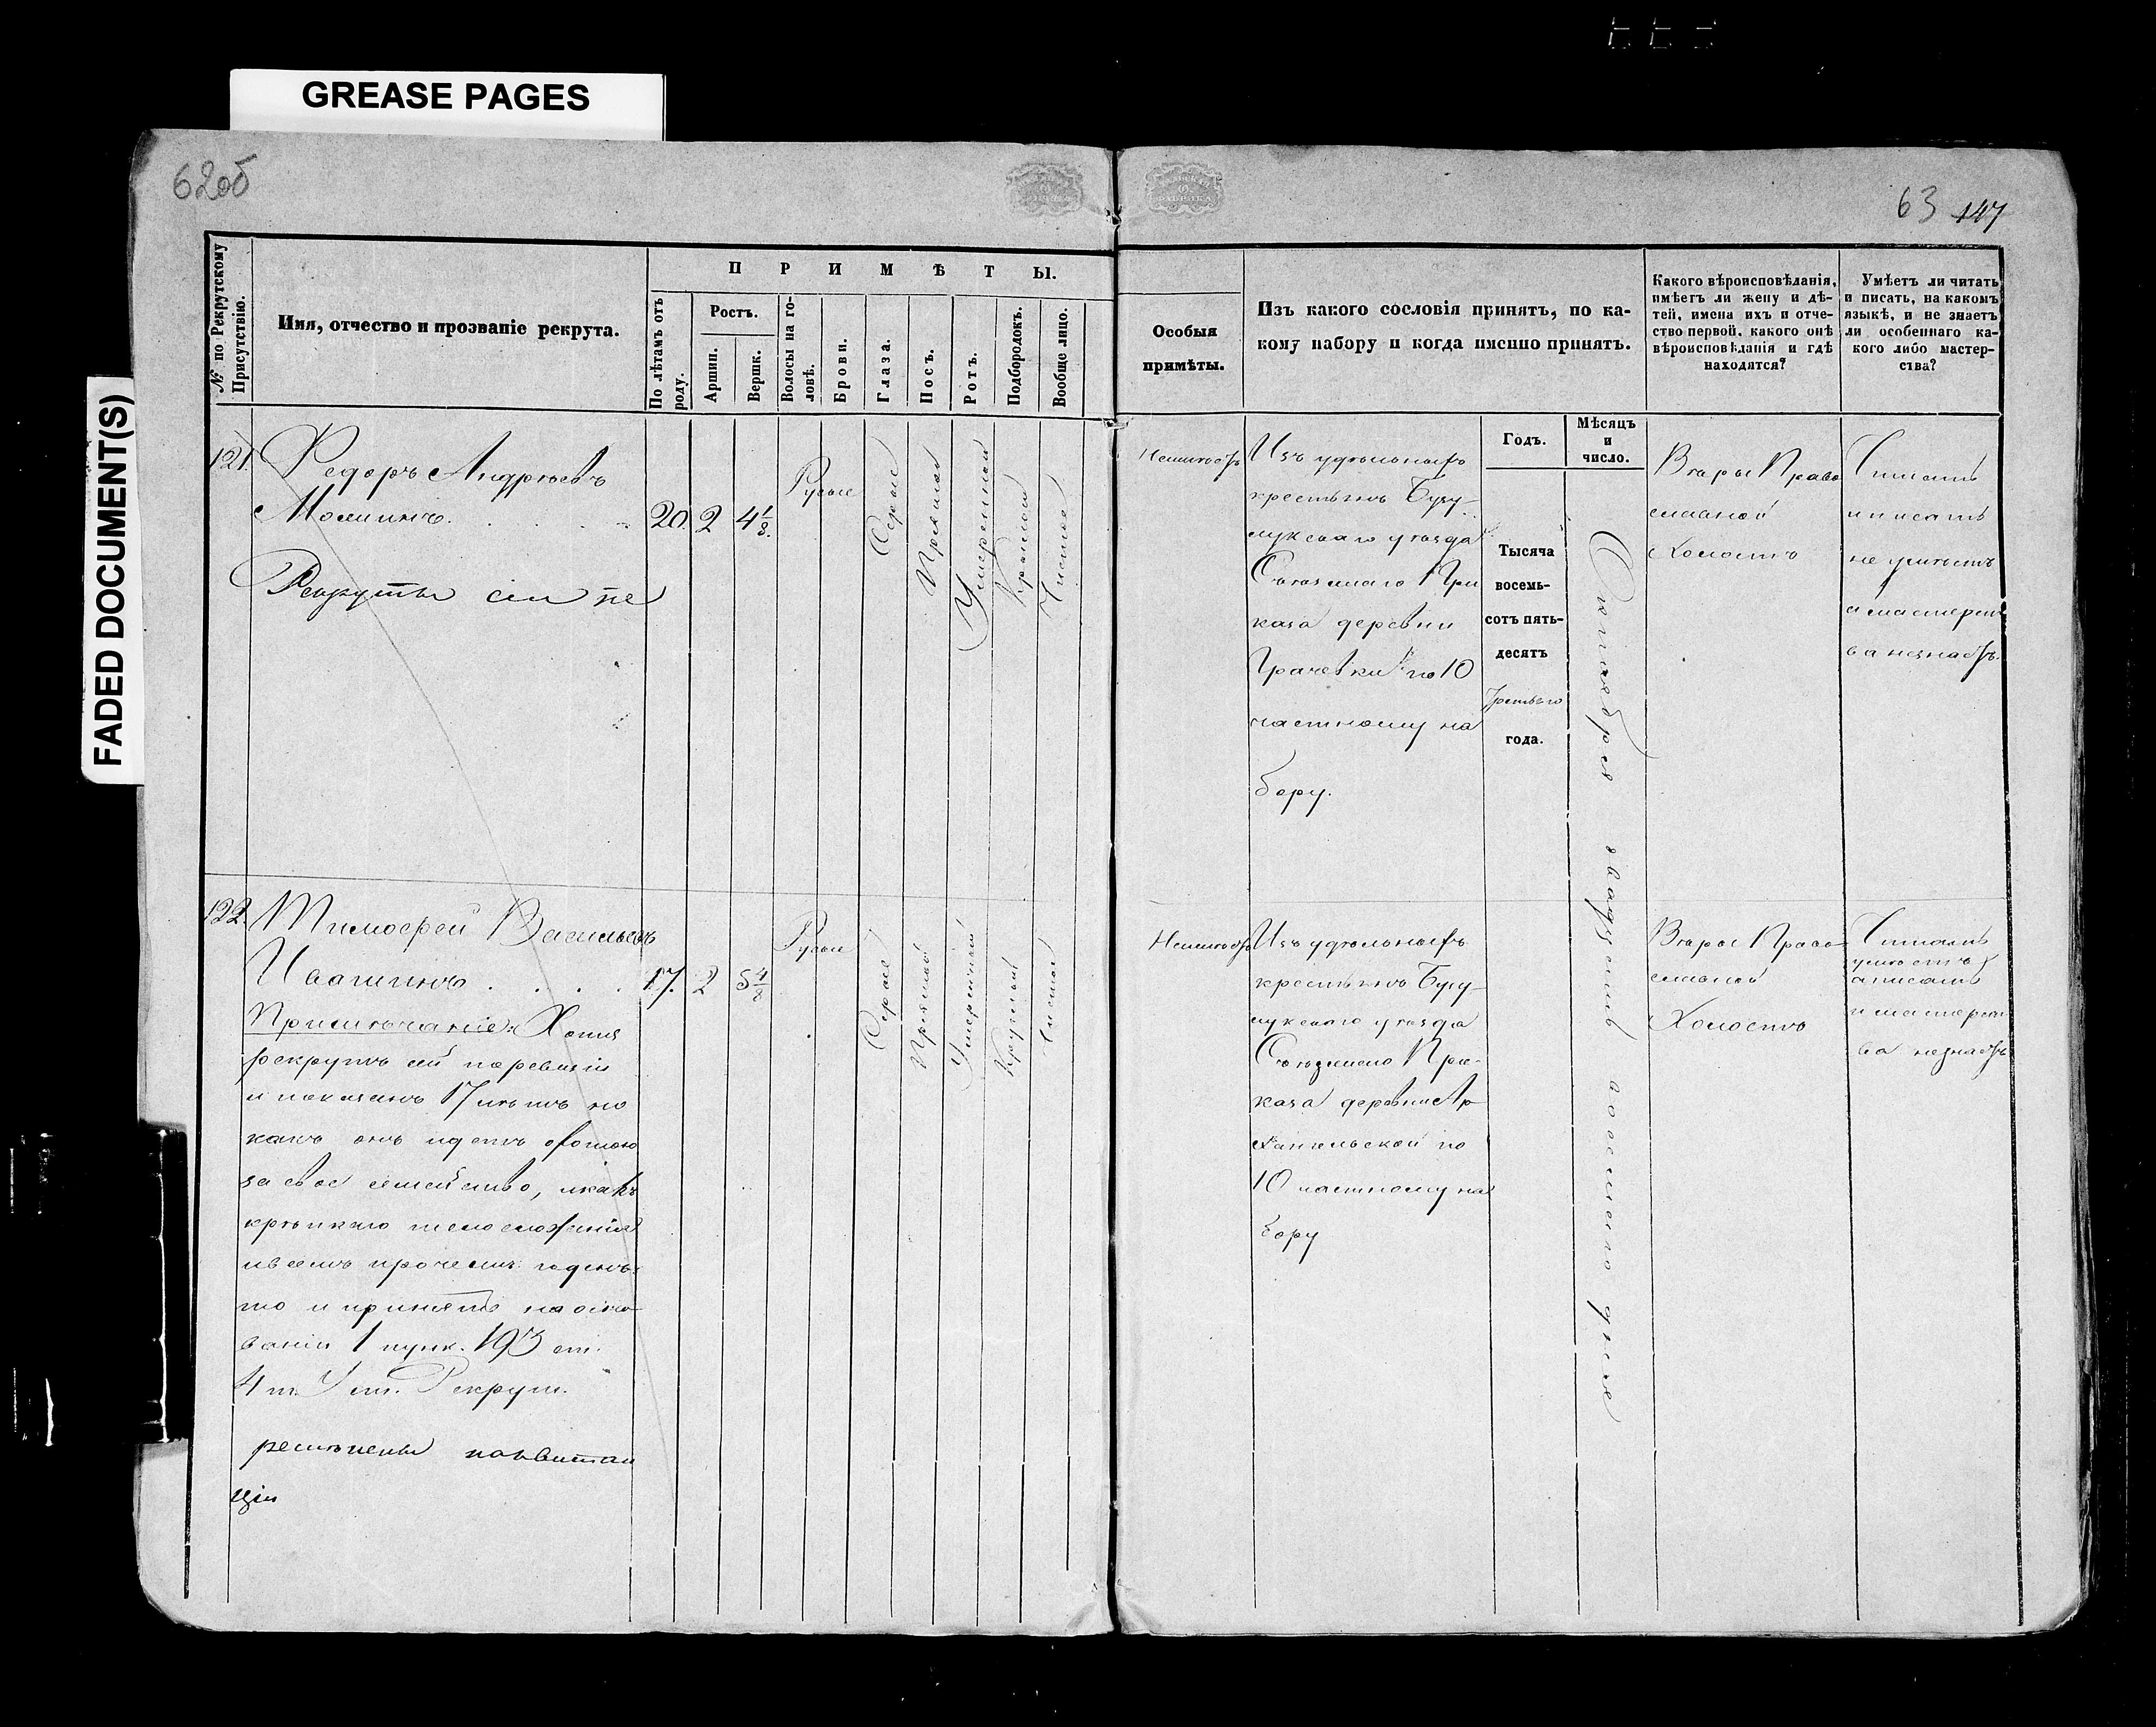 GREASE PAGES
FADED DOCUMENT(S)
62об
63 147
№ по Рекрутскому Присутствію.
Имя, отчество и прозваніе рекрута.
ПРИМѢТЫ.
По лѣтамъ отъ роду.
Ростъ.
Аршин.
Вершк.
Волосы на головѣ.
Брови.
Глаза.
Носъ.
Ротъ.
Подбородокъ.
Вообще лицо.
Особыя
примѣты.
Изъ какого сословія принятъ, по ка-
кому набору и когда именно принятъ.
Какого вѣроисповѣданія,
имѣетъ ли жену и дѣ-
тей, имена ихъ и отче-
ство первой, какого онѣ
вѣроисповѣданія и гдѣ
находятся?
Умѣетъ ли читать
и писать, на какомъ
языкѣ, и не знаетъ
ли особеннаго ка-
кого либо мастер-
ства?
Годъ.
Мѣсяцъ
и
число.
121.
Федоръ Андреевъ
20. 2 4 1/8.
Рекруты сіи не
Русые
Серые
Прямой
Умеренной
Круглой
Чистое
Неимѣетъ
Изъ удѣльныхъ
крестьянъ Бугу-
лукскаго уезда
Приказа деревни
Грачевки по 10
частному на
бору.
Тысяча
восемь-
сотъ пять-
десятъ
Третьяго
года.
двадцать восьмаго дня
Веры Право
славной
Холостъ
Читать
и писать
не умѣетъ
и мастерст
ва незнаетъ.
122.
Тимофей Васильевъ
Ивашинъ . . . . 17. 2 5 4/8
Примѣчаніе: Хотя
рекрутъ сей по ревизіи
и показанъ 17 лѣтъ но
какъ онъ идетъ охотою
за свое семейство, и какъ
крѣпкаго телосложенія
и всемъ прочемъ годенъ
то и принятъ на осно-
ваніи 1 пунк. 193 ст.
4 т. Уст. Рекрут.
решены по квитан
ціи
Русые
Серые
Прямой
Умеренный
Круглый
Чистое
Неимѣетъ
Изъ удѣльныхъ
крестьянъ Бугу-
лукскаго уезда
Приказа деревни Ар-
хангельской по
10 частному на
бору
Веры Право-
славной
Холостъ
Читать
умѣетъ
а писать
и мастерст
ва незнаетъ